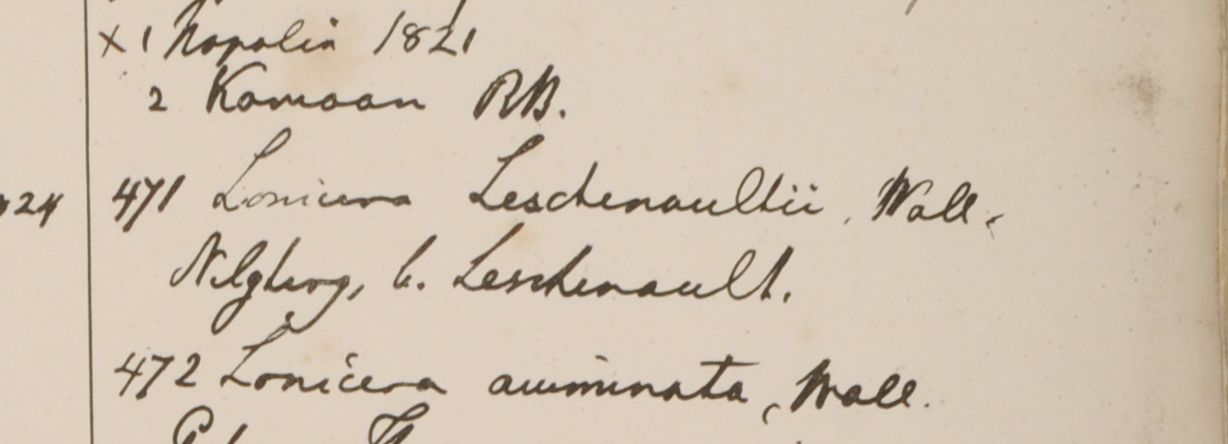 × 1 Napalia 1821
2 Kamaon RB.
24 471 Lonicera Leschenaultii, Wall.
Nilgherry, b. Leschenault.
472 Lonicera acuminata, Wall.